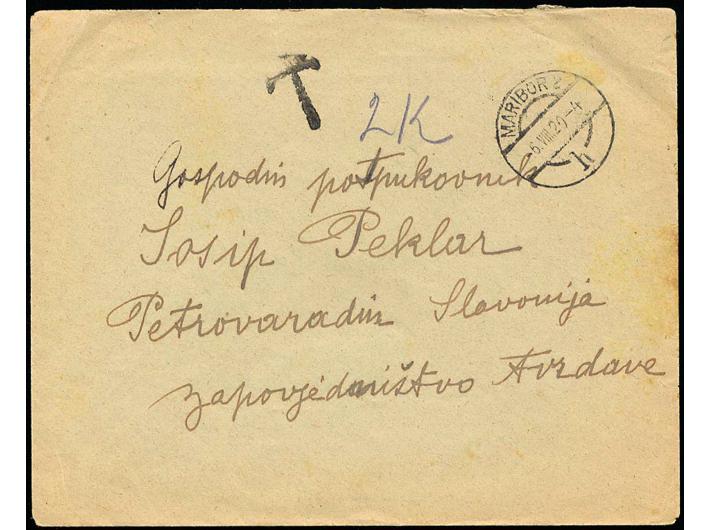 T
2K
MARIBOR 2
6.VIII.20-4
h
Gospodin potpukovnik
Josip Peklar
Petrovaradin Slavonija
zapovjedništvo tvrdave